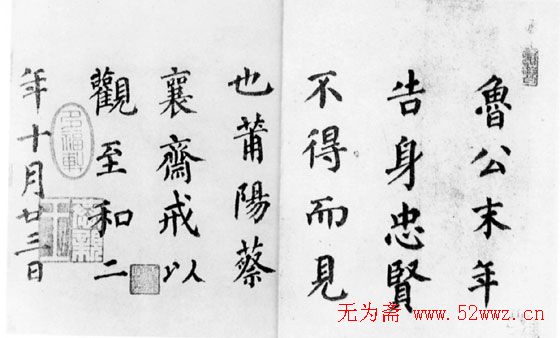 魯公末年
告身忠賢
不得而見
也莆陽蔡
襄齋戒以
觀至和二
年十月廿三日
无为斋 www.52wwz.cn